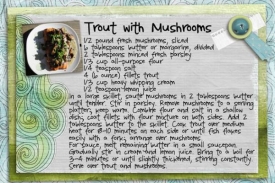 Trout with Mushrooms
1/2 pound fresh mushrooms, sliced
6 tablespoons butter or margarine, divided
2 tablespoons minced fresh parsley
1/3 cup all-purpose flour
1/4 teaspoon salt
4 (6 ounce) fillets trout
1/3 cup heavy whipping cream
1/2 teaspoon lemon juice
In a large skillet, sauté mushrooms in 2 tablespoons butter
until tender. Stir in parsley. Remove mushrooms to a serving
platter; keep warm. Combine flour and salt in a shallow
dish; coat fillets with flour mixture on both sides. Add 2
tablespoons butter to the skillet. Cook trout over medium
heat for 8-10 minutes on each side or until fish flakes
easily with a fork; arrange over mushrooms.
For sauce, melt remaining butter in a small saucepan.
Gradually stir in cream and lemon juice. Bring to a boil for
3-4 minutes or until slightly thickened, stirring constantly.
Serve over trout and mushrooms.